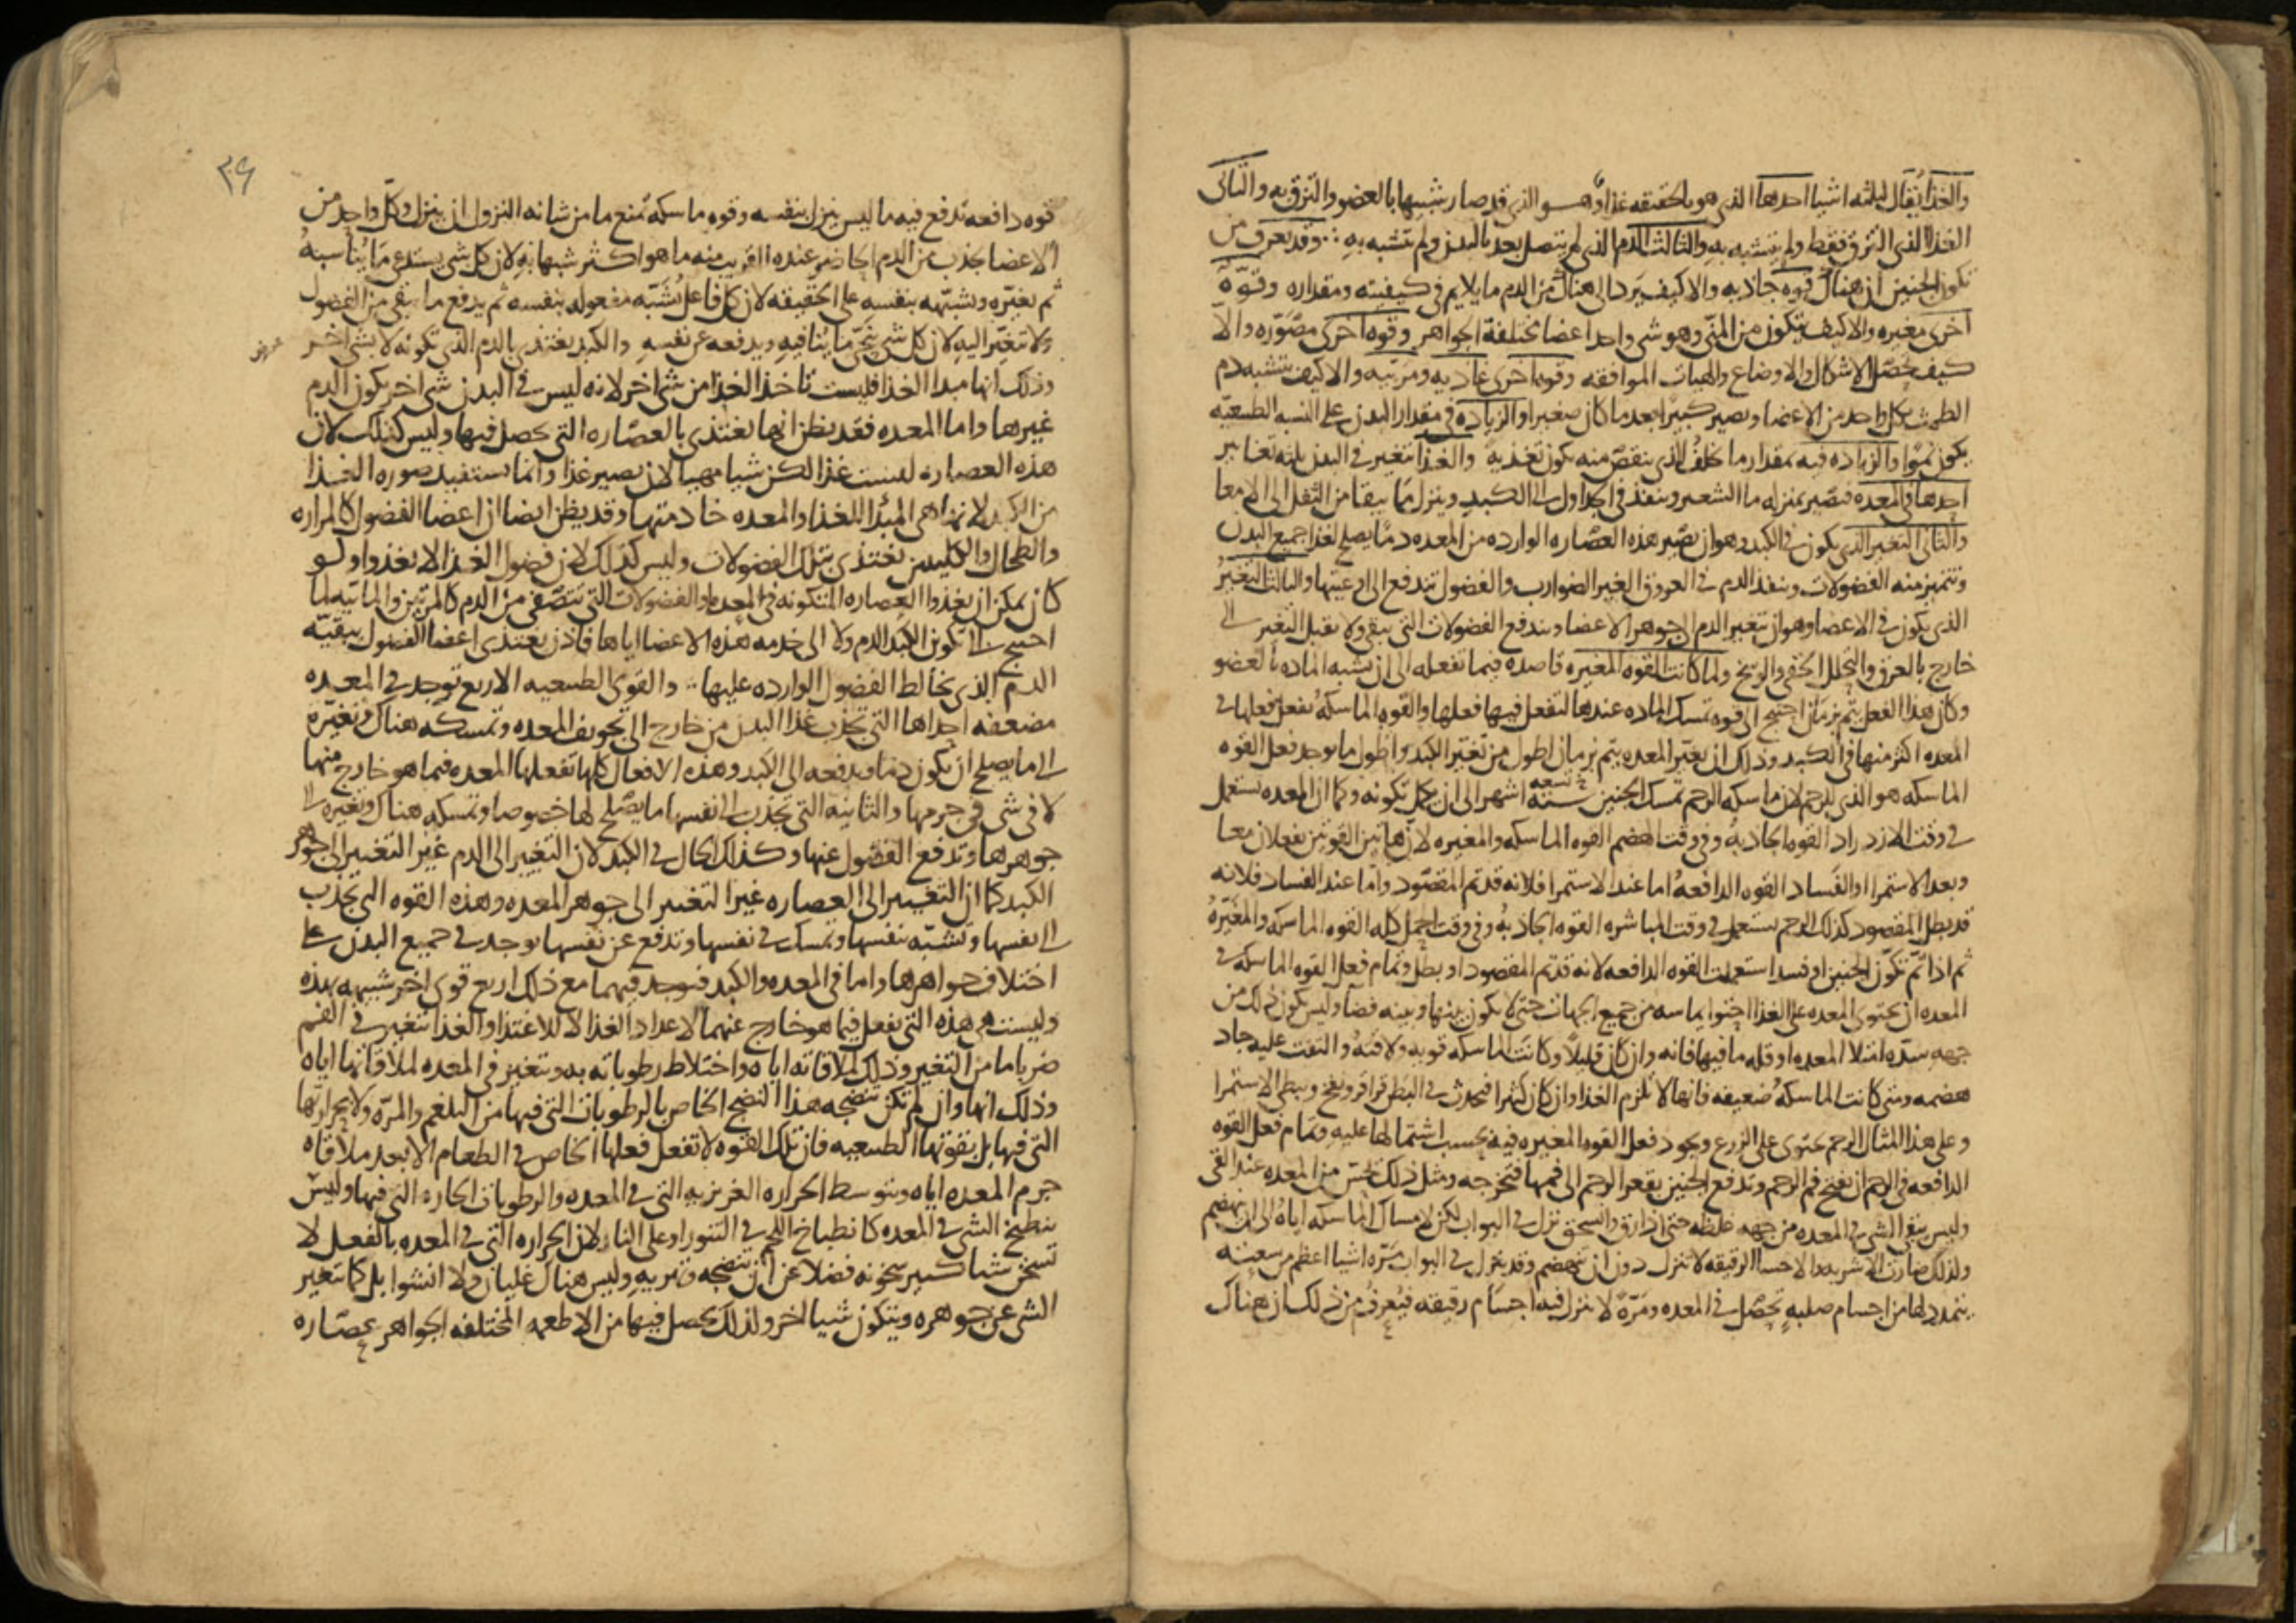 والغذا يقال لثلثه اشيا احدها الذي هو بالحقيقه غذا وهو الذي قد صار شبيها بالعضو والتزق به والثاني
الغذا الذي التزق فقط ولم يتشبه به والثالث الدم الذي لم يتصل بعد بالبدن ولم يتشبه به ∴ وقد يعرف من
تكون الجنين ان هناك قوه جاذبه والا كيف يرد الى هناك من الدم ما يلايم في كيفيته ومقداره وقوة
اخرى مغيره والا كيف يتكون من المني وهو شي واحد اعضا مختلفة الجواهر وقوه اخرى مصوره والا
كيف تحصل الاشكال والاوضاع والهيات الموافقه وقوه اخرى غاذيه ومربيه والا كيف يتشبه دم
الطمث بكل واحد من الاعضا ويصير كبيرا بعد ما كان صغيرا والزياده في مقدار البدن على النسبه الطبيعيه
يكون نموا والزياده فيه بمقدار ما يخلف الذي ينقص منه يكون تغذيه والغذا يتغير في البدن ثلثه تغايير
احدها في المعده فيصير بمنزله ما الشعير وينفذ في الجداول الى الكبد وينزل ما يبقا من الثفل الى الامعا
والثاني التغير الذي يكون في الكبد وهو ان تصير هذه العصاره الوارده من المعده دما يصلح لغذا جميع البدن
وتتميز منه الفضولات وينفذ الدم في العروق الغير الضوارب والفضول تندفع الى اوعيتها والثالث التغير
الذي يكون في الاعضا وهو ان يتغير الدم الى جوهر الاعضا وتندفع الفضولات التي تبقى ولا تقبل التغير الى
خارج بالعرق والتحلل الخفي والوسخ ولما كانت القوه المغيره قاصده فيما تفعله الى ان تشبه الماده بالعضو
وكان هذا الفعل يتم بزمان احتيج الى قوه تمسك الماده عندها لتفعل فيها فعلها والقوه الماسكه تفعل فعلها في
المعده اكثر منها في الكبد وذلك ان تغير المعده يتم بزمان اطول من تغير الكبد واطول ما يوجد فعل القوه
الماسكه هو الذي للرحم لان ماسكه الرحم تمسك الجنين ستة تسعه اشهر الى ان يكمل تكونه وكما ان المعده تستعمل
في وقت الازدراد القوه الجاذبه وفي وقت الهضم القوه الماسكه والمغيره لان هاتين القوتين تفعلان معا
وبعد الاستمرا او الفساد القوه الدافعه اما عند الاستمرا فلانه قد تم المقصود واما عند الفساد فلانه
قد بطل المقصود كذلك الرحم تستعمل في وقت المباشره القوه الجاذبه وفي وقت الحمل كله القوه الماسكه والمغيره
ثم اذا تم تكون الجنين او فسد استعملت القوه الدافعه لانه قد تم المقصود او بطل وتمام فعل القوه الماسكه في
المعده ان تحتوي المعده على الغذا احتوا يماسه من جميع الجهات حتى لا يكون بينها وبينه فضا وليس يكون ذلك من
جهه شده امتلا المعده او قله ما فيها فانه وان كان قليلا وكانت الماسكه قويه ولاقته والتفت عليه جاد
هضمه ومتى كانت الماسكه ضعيفه فانها لا تلزم الغذا وان كان كثيرا فيحدث في البطن قراقر ونفخ وبطي الاستمرا
وعلى هذا المثال الرحم تحتوي على الزرع ويجود فعل القوه المغيره فيه بحسب اشتمالها عليه وتمام فعل القوه
الدافعه في الرحم ان يفتح فم الرحم وتدفع الجنين بقعر الرحم الى فمها فتخرجه ومثل ذلك نحس من المعده عند القي
وليس يبقى الشي في المعده من جهه غلظه حتى اذا رق وانسحق نزل في البواب لكن لامساك الماسكه اياه الى ان ينهضم
ولذلك صارت الاشربه والاحسا الرقيقه لا تنزل دون ان تنهضم وقد ينزل في البواب مرة اشيا اعظم من سعته
يتمدد لها من اجسام صلبه تحصل في المعده ومرة لا ينزل فيه اجسام رقيقه فيعرف من ذلك ان هناك
٣٤
قوه دافعه تدفع فيه ما ليس ينزل بنفسه وقوه ماسكه تمنع ما من شانه النزول ان ينزل وكل واحد من
الاعضا يجذب من الدم الحاضر عنده القريب منه ما هو اكثر شبها به لان كل شي يستدعي ما يناسبه
ثم يغيره ويشبهه بنفسه على الحقيقه لان كل فاعل يشبه مفعوله بنفسه ثم يدفع ما يبقى من الفضول
ولا تتغير اليه لان كل شي ينحي ما ينافيه ويدفعه عن نفسه والكبد يغتذي بالدم الذي تكونه لا بشي اخر
وذلك انها مبدا الغذا فليست تاخذ الغذا من شي اخر لانه ليس في البدن شي اخر يكون الدم
غيرها واما المعده فقد يظن انها تغتذي بالعصاره التي تحصل فيها وليس كذلك لان
هذه العصاره ليست غذا لكن شيا مهيا لان يصير غذا وانما يستفيد صوره الغذا
من الكبد لانها هي المبدا للغذا والمعده خادمتها وقد يظن ايضا ان اعضا الفضول كالمراره
والطحال والكليتين تغتذي بتلك الفضولات وليس كذلك لان فضول الغذا لا تغذوا ولو
كان يمكن ان يغذوا العصاره المتكونه في المعده او الفضولات التي تتصفى من الدم كالمرتين والمائيه لما
احتيج الى تكوين الكبد الدم ولا الى خدمه هذه الاعضا اياها فاذن يغتذي اعضا الفضول ببقيه
الدم الذي يخالط الفضول الوارده عليها ∴ والقوى الطبيعيه الاربع توجد في المعده
مضعفه احداها التي تجذب غذا البدن من خارج الى تجويف المعده وتمسكه هناك وتغيره
الى ما يصلح ان يكون دما وتدفعه الى الكبد وهذه الافعال كلها تفعلها المعده فيما هو خارج منها
لا في شي في جرمها والثانيه التي تجذب الى نفسها ما يصلح لها خصوصا وتمسكه هناك وتغيره الى
جوهرها وتدفع الفضول عنها وكذلك الحال في الكبد لان التغيير الى الدم غير التغيير الى جوهر
الكبد كما ان التغيير الى العصاره غير التغيير الى جوهر المعده وهذه القوه التي تجذب
الى نفسها وتشبه بنفسها وتمسك في نفسها وتدفع عن نفسها توجد في جميع البدن على
اختلاف جواهرها واما في المعده والكبد فتوجد فيهما مع ذلك اربع قوى اخر شبيهه بهذه
وليست هي هذه التي تفعل فيما هو خارج عنهما لاعداد الغذا لا للاغتذا والغذا يتغير في الفم
ضربا ما من التغير وذلك لملاقاته اياه واختلاط رطوباته به ويتغير في المعده لملاقاتها اياه
وذلك انها وان لم تكن تنضجه هذا النضج الخاص بالرطوبات التي فيها من البلغم والمره ولا بحرارتها
التي فيها بل بقوتها الطبيعيه فان تلك القوه لا تفعل فعلها الخاص في الطعام الا بعد ملاقاه
جرم المعده اياه وبتوسط الحراره الغريزيه التي في المعده والرطوبات الحاره التي فيها وليس
ينطبخ الشي في المعده كانطباخ اللحم في التنور او على النار لان الحراره التي في المعده بالفعل لا
تسخن شيا كبير سخونه فضلا عن ان تنضجه وتهريه وليس هناك غليان ولا انشوا بل كما يتغير
الشي عن جوهره ويتكون شيا اخر ولذلك يحصل فيها من الاطعمه المختلفه الجواهر عصاره